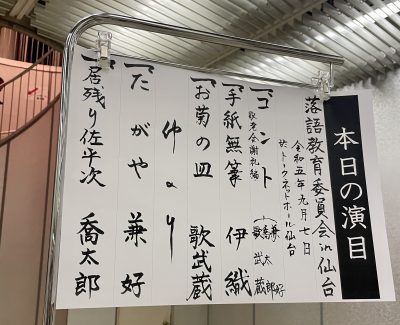 本日の演目
落語教育委員会in仙台
令和五年九月七日
於 トークネットホール仙台
一、コント
敬老会謝礼編
兼好
喬太郎
歌武蔵
一、手紙無筆 伊織
一、お菊の皿 歌武蔵
仲入り
一、たがや 兼好
一、居残り佐平次 喬太郎